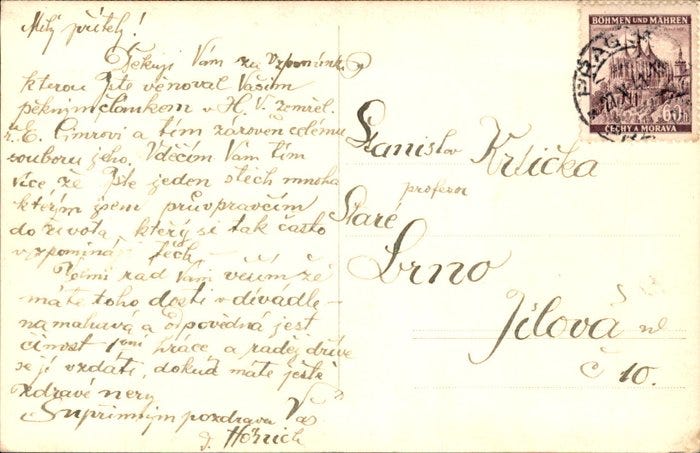 Milý příteli!
Děkuji Vám za vzpomínk
kterou Jste věnoval Vašim
pěkným článkem v H. V. zemřel.
E. Cimrovi a tím zároveň celému
souboru jeho. Vděčím Vám tím
více, že Jste jeden z těch mnoha
kterým jsem průvpravčím
do života, který si tak často
vzpomínají těch
Velmi rád Vám věřím že
máte toho dosti v divadle –
namahavá a odpovědná jest
činost hráče a raděj dříve
se jí vzdáti, dokud máte ještě
zdravé nervy
Supřimným pozdravem Váš
Hořrich
BÖHMEN UND MÄHREN
60h
ČECHY A MORAVA
PRAG
Stanislav Krtička
profesor
Staré
Brno
Jílová ul
č 10.